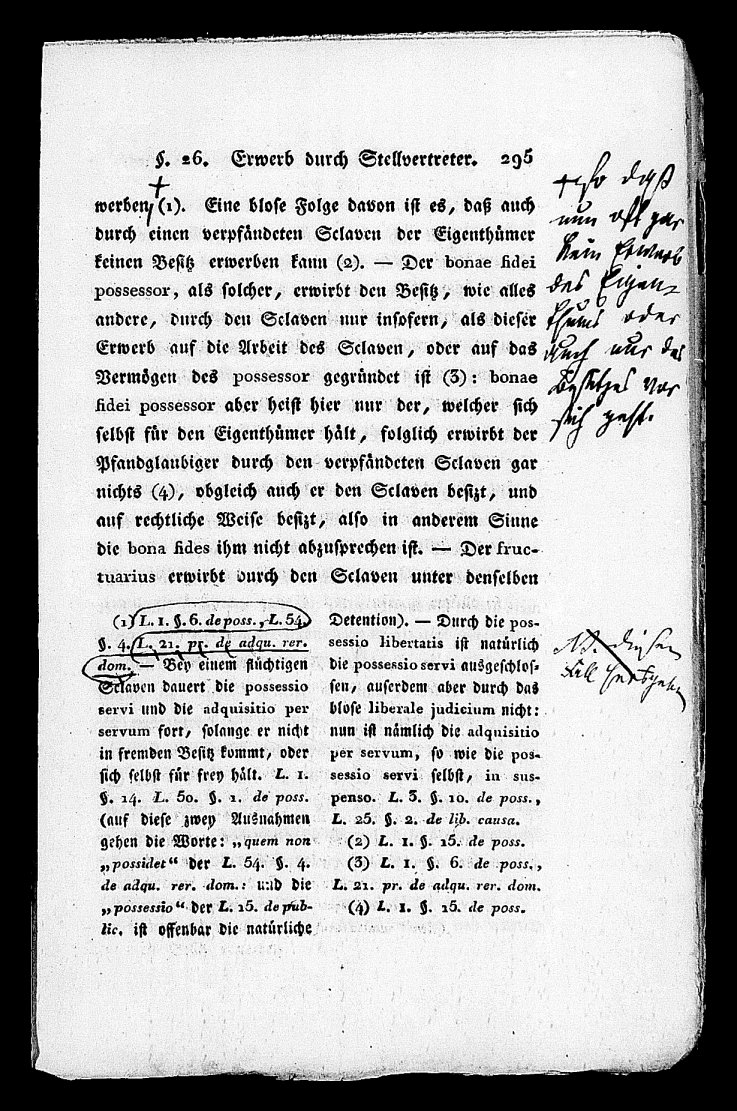 §. 26. Erwerb durch Stellvertreter. 295
werben (1). Eine blose Folge davon ist es, daß auch
durch einen verpfändeten Sclaven der Eigenthümer
keinen Besitz erwerben kann (2). — Der bonae fidei
possessor, als solcher, erwirbt den Besitz, wie alles
andere, durch den Sclaven nur insofern, als dieser
Erwerb auf die Arbeit des Sclaven, oder auf das
Vermögen des possessor gegründet ist (3): bonae
fidei possessor aber heist hier nur der, welcher sich
selbst für den Eigenthümer hält, folglich erwirbt der
Pfandglaubiger durch den verpfändeten Sclaven gar
nichts (4), obgleich auch er den Sclaven besizt, und
auf rechtliche Weise besizt, also in anderem Sinne
die bona fides ihm nicht abzusprechen ist. — Der fruc-
tuarius erwirbt durch den Sclaven unter denselben
+ so daß
nun oft gar
kein Erwerb
des Eigen-
thums oder
auch nur des
Besitzes vor
sich geht.
(1) L. 1. §. 6. de poss., L. 54.
§. 4. L. 21. pr. de adqu. rer.
dom. — Bey einem flüchtigen
Sclaven dauert die possessio
servi und die adquisitio per
servum fort, solange er nicht
in fremden Besitz kommt, oder
sich selbst für frey hält. L. 1.
§. 14. L. 50. §. 1. de poss.
(auf diese zwey Ausnahmen
gehen die Worte: „quem non
„possidet“ der L. 54. §. 4.
de adqu. rer. dom.: und die
„possessio“ der L. 15. de pub-
lic. ist offenbar die natürliche
Detention). — Durch die pos-
sessio libertatis ist natürlich
die possessio servi ausgeschlos-
sen, auserdem aber durch das
blose liberale judicium nicht:
nun ist nämlich die adquisitio
per servum, so wie die pos-
sessio servi selbst, in sus-
penso. L. 3. §. 10. de poss.,
L. 25. §. 2. de lib. causa.
(2) L. 1. §. 15. de poss.
(3) L. 1. §. 6. de poss.,
L. 21. pr. de adqu. rer. dom.
(4) L. 1. §. 15. de poss.